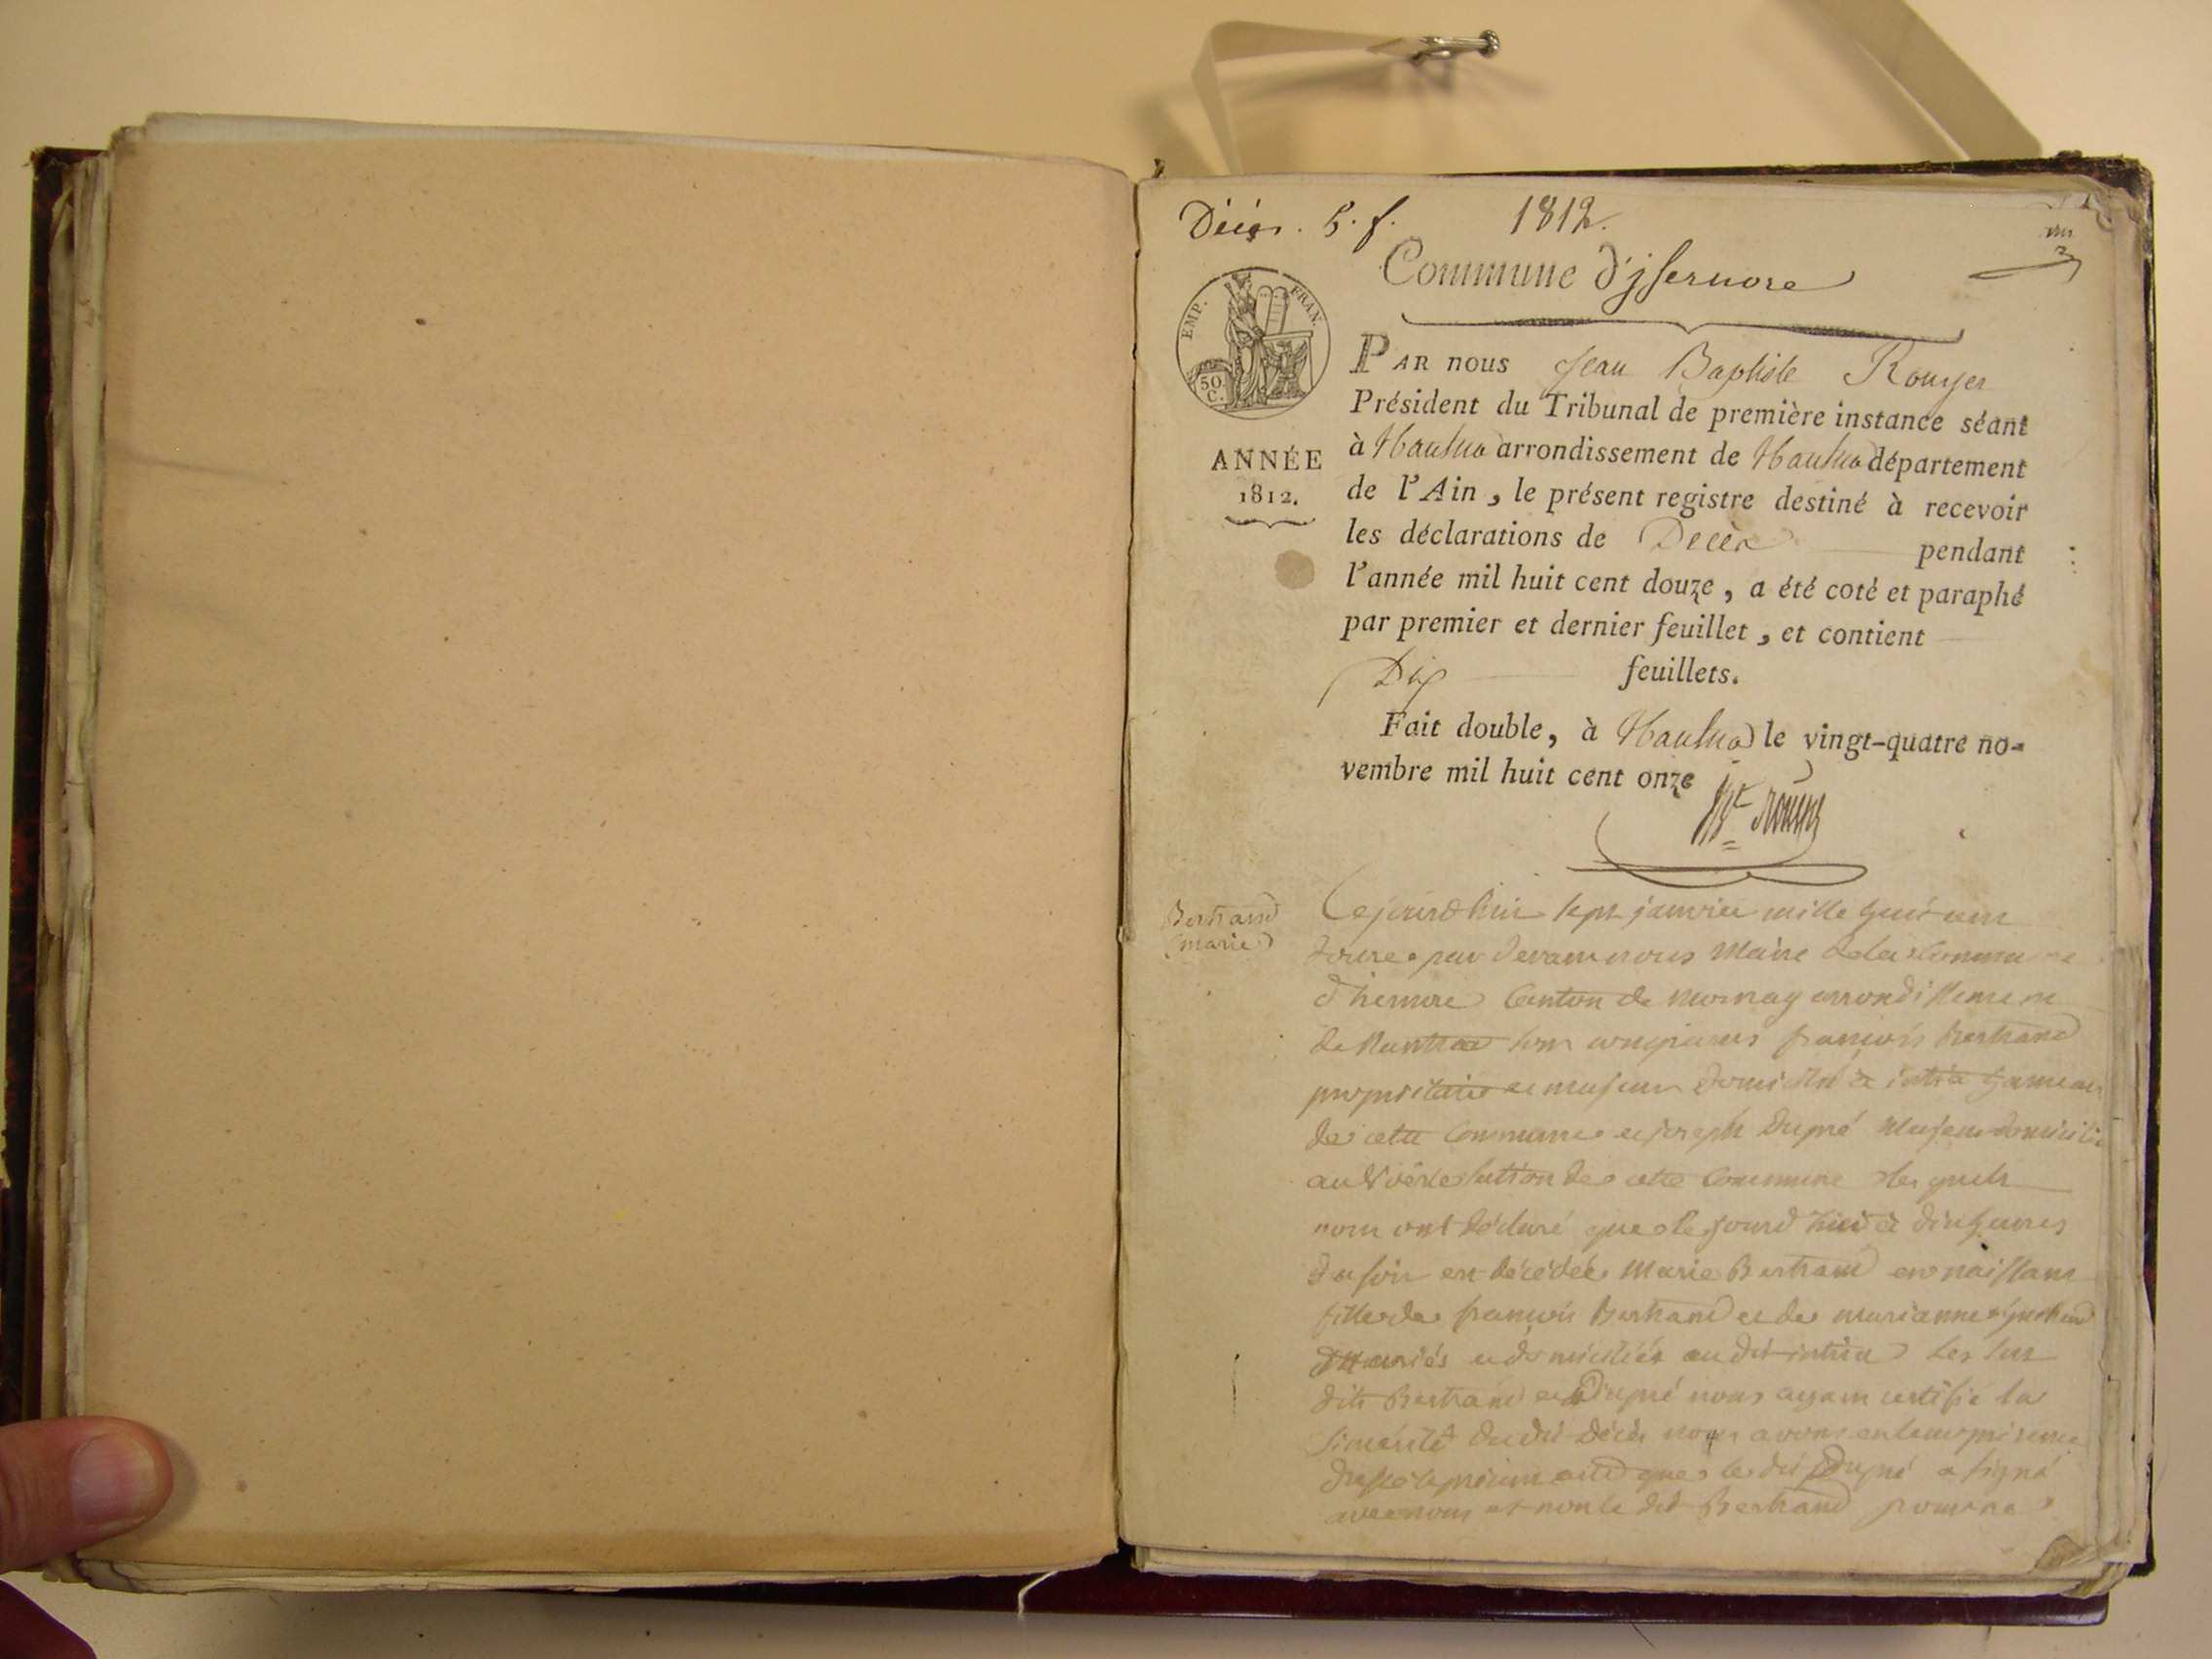 Décès. 5. f. 1812.
un
Commune d'jsernore
EMP. FRAN.
50. C.
ANNÉE
1812.
PAR nous Jean Baptiste Rouyer
Président du Tribunal de première instance séant
à Nantua arrondissement de Nantua département
de l'Ain, le présent registre destiné à recevoir
les déclarations de Décès pendant
l'année mil huit cent douze, a été coté et paraphé
par premier et dernier feuillet, et contient
Dix feuillets.
Fait double, à Nantua le vingt-quatre no-
vembre mil huit cent onze
Bertrand
marie
Cejourd'hui sept janvier mille huit cent
douze par devant nous Maire de la Commune
d'hernore Canton de mornay arrondissement
de Nantua sont comparus francois Bertrand
propriétaire et majeur domicilié à intria hameau
de cette Commune et joseph Dupré Majeur domicilié
au de cette Commune les quels
nous ont déclaré que le jourd'hui à dix heures
du soir est décédée Marie Bertrand en naissant
fille de francois Bertrand et de marianne
mariés et domiciliés au dit intria Les sus
dits Bertrand et Dupré nous ayant certifié la
sincérité du dit Décès nous avons en leur présence
dressé le présent acte que le dit Dupré a signé
avec nous et non le dit Bertrand pour ne